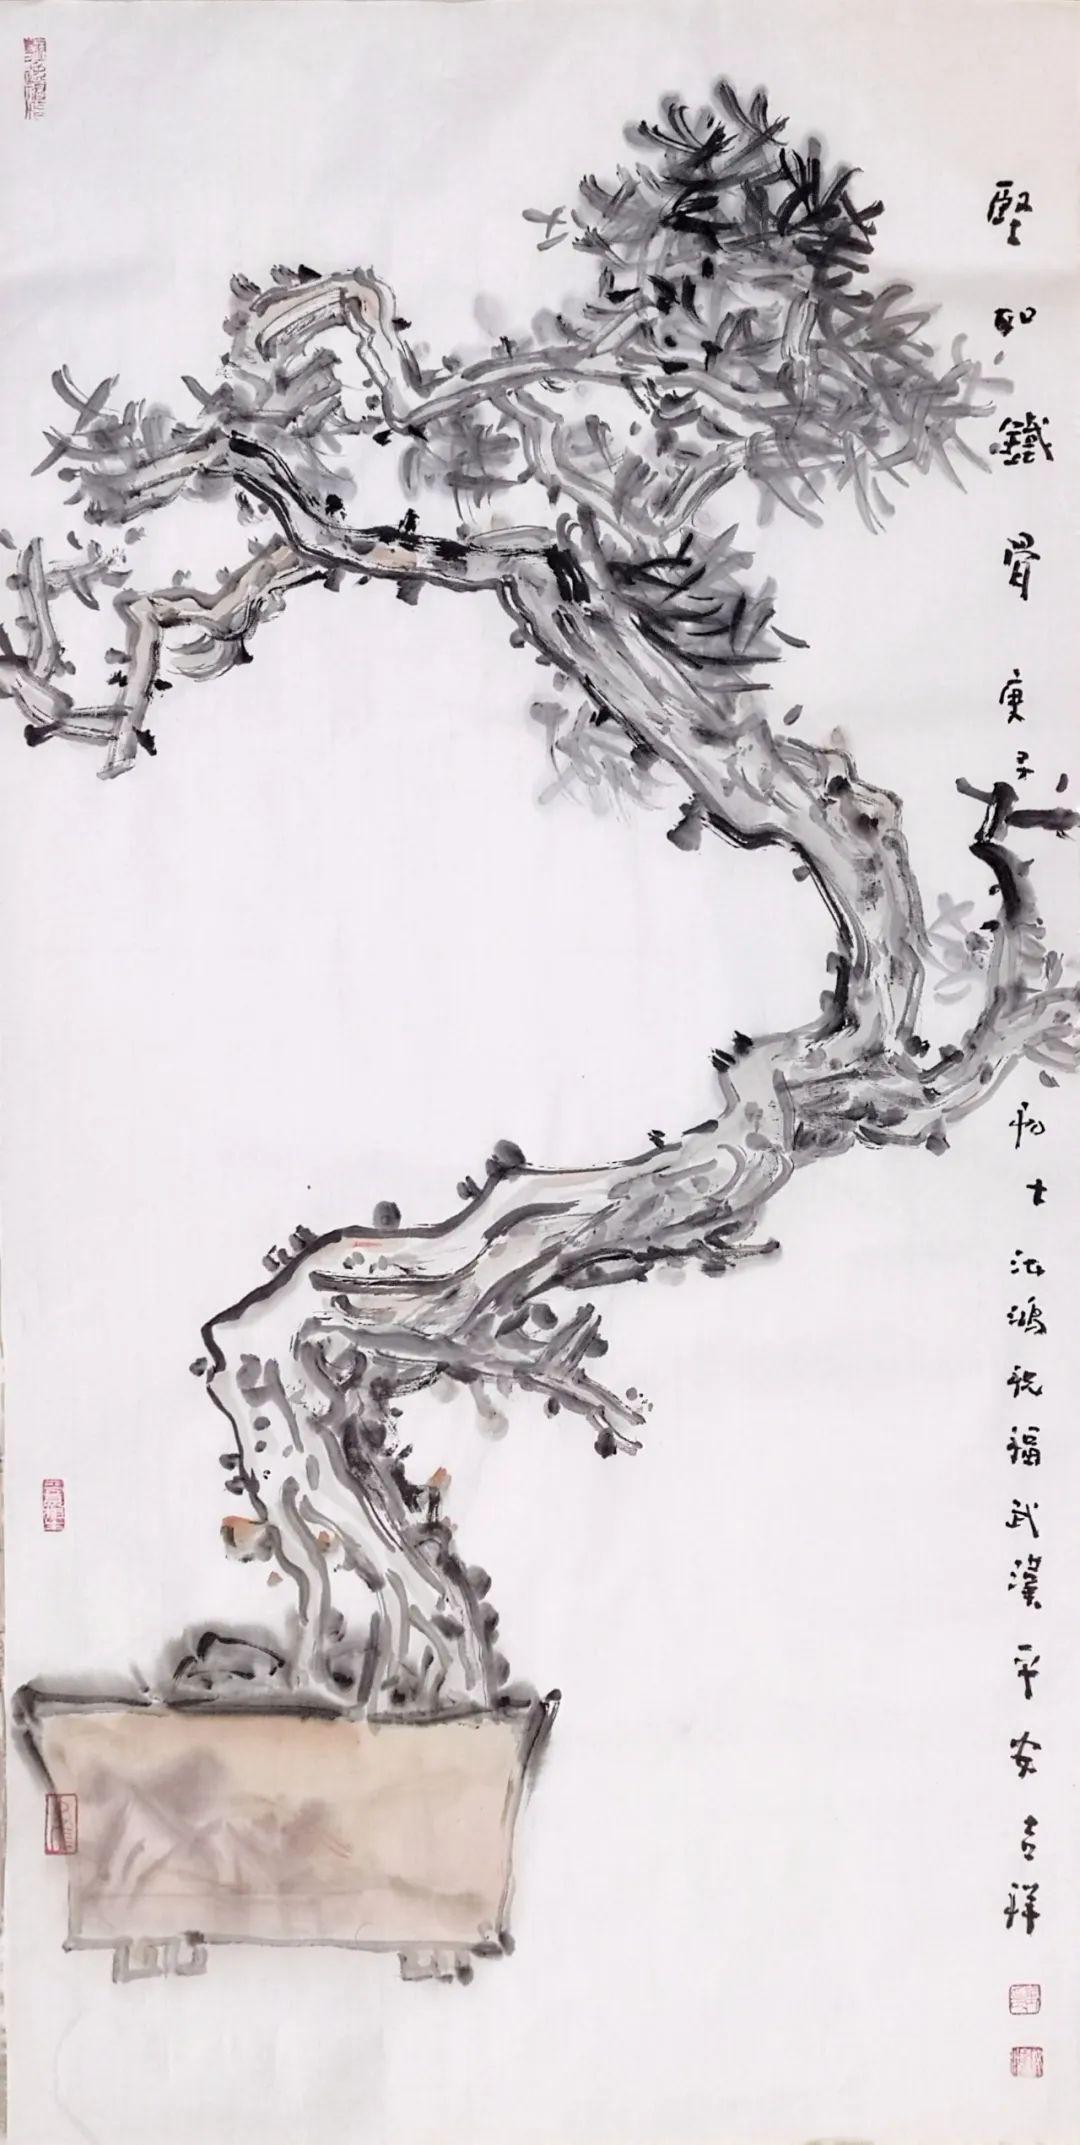 堅如鐵骨庚子初七鴻祝福武漢平安吉祥